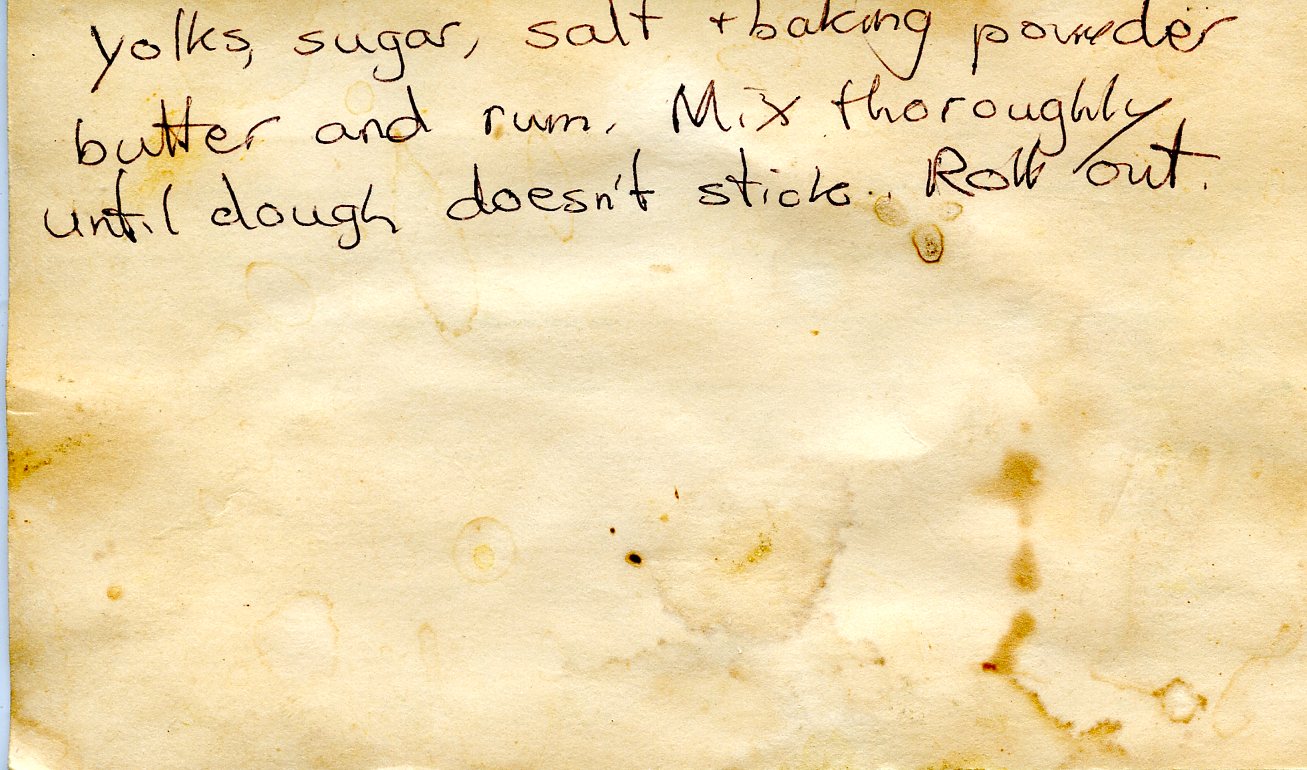 yolks, sugar, salt + baking powder
butter and rum. Mix thoroughly
until dough doesn't stick. Roll out.